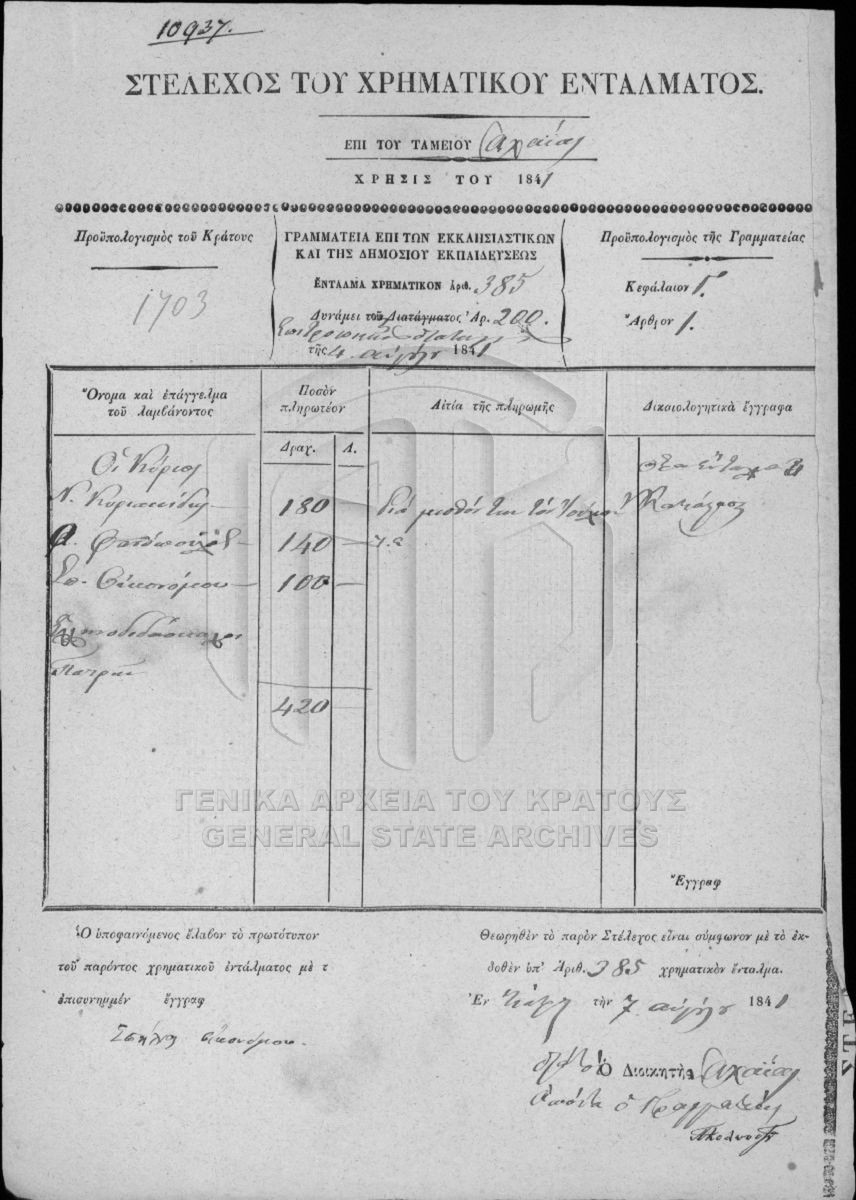 10937.
ΣΤΕΛΕΧΟΣ ΤΟΥ ΧΡΗΜΑΤΙΚΟΥ ΕΝΤΑΛΜΑΤΟΣ.
ΕΠΙ ΤΟΥ ΤΑΜΕΙΟΥ Αχαΐας
ΧΡΗΣΙΣ ΤΟΥ 1841
Προϋπολογισμὸς τοῦ Κράτους
1703
ΓΡΑΜΜΑΤΕΙΑ ΕΠΙ ΤΩΝ ΕΚΚΛΗΣΙΑΣΤΙΚΩΝ
ΚΑΙ ΤΗΣ ΔΗΜΟΣΙΟΥ ΕΚΠΑΙΔΕΥΣΕΩΣ
ΕΝΤΑΛΜΑ ΧΡΗΜΑΤΙΚΟΝ ἀριθ. 385
Δυνάμει τοῦ Διατάγματος Ἀρ. 200.
τῆς 4 1841
Προϋπολογισμὸς τῆς Γραμματείας
Κεφάλαιον Γ.
Ἄρθρον 1.
Ὄνομα καὶ ἐπάγγελμα
τοῦ λαμβάνοντος
Ποσὸν
πληρωτέον
Αἰτία τῆς πληρωμῆς
Δικαιολογητικὰ ἔγγραφα
Δραχ. Λ.
Οἱ Κύριοι
Ν. Κυριακίδης 180 διὰ μισθόν των τὸν
140
Σπ. Οἰκονόμου 100
Πατρῶν
420
ΓΕΝΙΚΑ ΑΡΧΕΙΑ ΤΟΥ ΚΡΑΤΟΥΣ
GENERAL STATE ARCHIVES
Ἔγγραφ
Ὁ ὑποφαινόμενος ἔλαβον τὸ πρωτότυπον
τοῦ παρόντος χρηματικοῦ ἐντάλματος μὲ τ
ἐπισυνημμέν ἔγγραφ
οἰκονόμου.
Θεωρηθὲν τὸ παρὸν Στέλεχος εἶναι σύμφωνον μὲ τὸ ἐκ-
δοθὲν ὑπ' Ἀριθ. 385 χρηματικὸν ἔνταλμα.
Ἐν τὴν 7 1841
Ὁ Διοικητὴς Αχαΐας
ὁ Γραμματεὺς